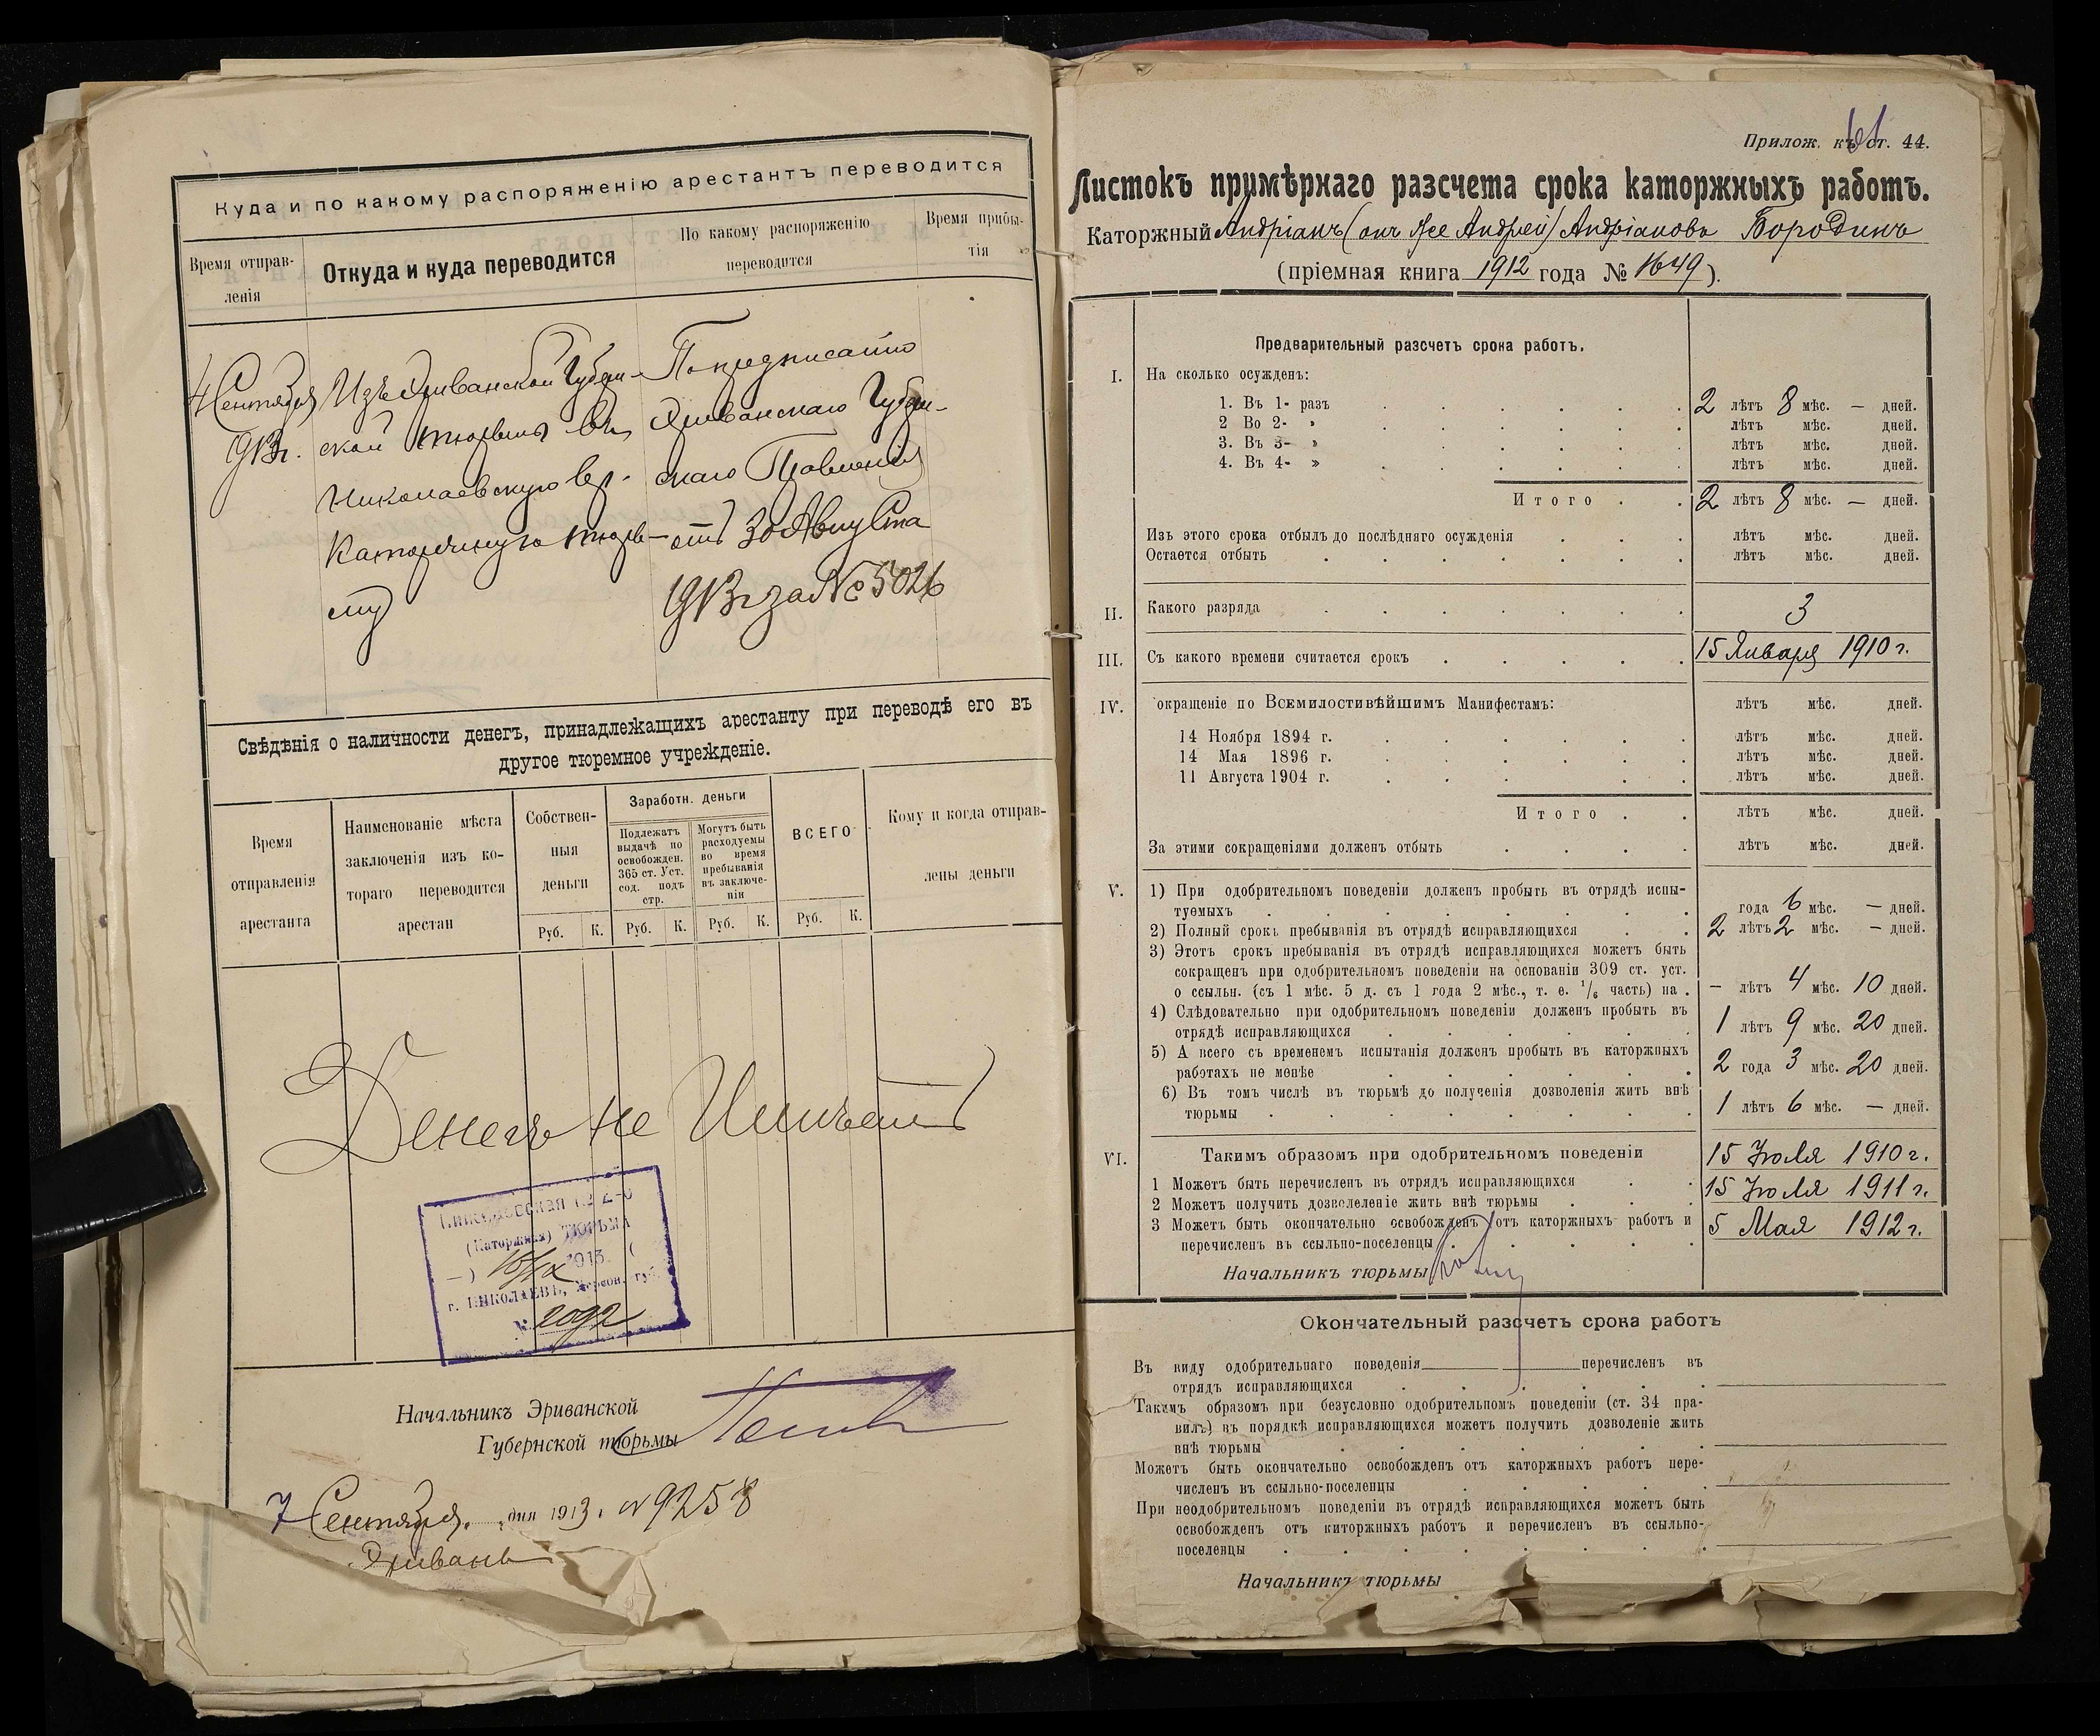 Куда и по какому распоряженію арестантъ переводится
Время отправ-
ленія
Откуда и куда переводится
По какому распоряженію
переводится
Время прибы-
тія
4 Сентября
1913 г.
Изъ Эриванской Губерн-
ской тюрьмы въ
Николаевскую вр.
Каторжную тюрь-
му
По предписанію
Эриванскаго Губерн-
скаго Правленія
отъ 30 Августа
1913 г за № 5026
Свѣдѣнія о наличности денегъ, принадлежащихъ арестанту при переводѣ его въ
другое тюремное учрежденіе.
Время
отправленія
арестанта
Наименованіе мѣста
заключенія изъ ко-
тораго переводится
арестан
Собствен-
ныя
деньги
Заработн. деньги
Подлежатъ
выдачѣ по
освобожден.
365 ст. Уст.
сод. подъ
стр.
Могутъ быть
расходуемы
во время
пребыванія
въ заключе-
ніи
ВСЕГО
Кому и когда отправ-
лены деньги
Руб. К. Руб. К. Руб. К. Руб. К.
Денегъ не Имѣетъ
(Каторжная) ТЮРЬМА
1913
г. НИКОЛАЕВЪ, Херсон. губ.
№ 2092
Начальникъ Эриванской
Губернской тюрьмы
7 Сентября дня 1913. № 9258
Эривань
Прилож. къ ст. 44.
Листокъ примѣрнаго разсчета срока каторжныхъ работъ.
Каторжный Андріанъ (онъ же Андрей) Андріановъ Бородинъ
(пріемная книга 1912 года № 1649).
Предварительный разсчетъ срока работъ.
I. На сколько осужденъ:
1. Въ 1- разъ 2 лѣтъ 8 мѣс. — дней.
2 Во 2- » лѣтъ мѣс. дней.
3. Въ 3- » лѣтъ мѣс. дней.
4. Въ 4- » лѣтъ мѣс. дней.
Итого 2 лѣтъ 8 мѣс. — дней.
Изъ этого срока отбылъ до послѣдняго осужденія лѣтъ мѣс. дней.
Остается отбыть лѣтъ мѣс. дней.
II. Какого разряда 3
III. Съ какого времени считается срокъ 15 Января 1910 г.
IV. окращеніе по Всемилостивѣйшимъ Манифестамъ: лѣтъ мѣс. дней.
14 Ноября 1894 г. лѣтъ мѣс. дней.
14 Мая 1896 г. лѣтъ мѣс. дней.
11 Августа 1904 г. лѣтъ мѣс. дней.
Итого лѣтъ мѣс. дней.
За этими сокращеніями долженъ отбыть лѣтъ мѣс. дней.
V. 1) При одобрительномъ поведеніи долженъ пробыть въ отрядѣ испы-
туемыхъ года 6 мѣс. — дней.
2) Полный срокъ пребыванія въ отрядѣ исправляющихся 2 лѣтъ 2 мѣс. — дней.
3) Этотъ срокъ пребыванія въ отрядѣ исправляющихся можетъ быть
сокращенъ при одобрительномъ поведеніи на основаніи 309 ст. уст.
о ссыльн. (съ 1 мѣс. 5 д. съ 1 года 2 мѣс., т. е. 1/6 часть) на . — лѣтъ 4 мѣс. 10 дней.
4) Слѣдовательно при одобрительномъ поведеніи долженъ пробыть въ
отрядѣ исправляющихся 1 лѣтъ 9 мѣс. 20 дней.
5) А всего съ временемъ испытанія долженъ пробыть въ каторжныхъ
работахъ не менѣе 2 года 3 мѣс. 20 дней.
6) Въ томъ числѣ въ тюрьмѣ до полученія дозволенія жить внѣ
тюрьмы 1 лѣтъ 6 мѣс. — дней.
VI. Такимъ образомъ при одобрительномъ поведеніи 15 Іюля 1910 г.
1 Можетъ быть перечисленъ въ отрядъ исправляющихся
2 Можетъ получить дозволеленіе жить внѣ тюрьмы 15 Іюля 1911 г.
3 Можетъ быть окончательно освобожденъ отъ каторжныхъ работъ и 5 Мая 1912 г.
перечисленъ въ ссыльно-поселенцы
Начальникъ тюрьмы
Окончательный разсчетъ срока работъ
Въ виду одобрительнаго поведенія перечисленъ въ
отрядъ исправляющихся
Такимъ образомъ при безусловно одобрительномъ поведеніи (ст. 34 пра-
вилъ) въ порядкѣ исправляющихся можетъ получить дозволеніе жить
внѣ тюрьмы
Можетъ быть окончательно освобожденъ отъ каторжныхъ работъ пере-
численъ въ ссыльно-поселенцы
При неодобрительномъ поведеніи въ отрядѣ исправляющихся можетъ быть
освобожденъ отъ киторжныхъ работъ и перечисленъ въ ссыльно-
поселенцы
Начальникъ тюрьмы